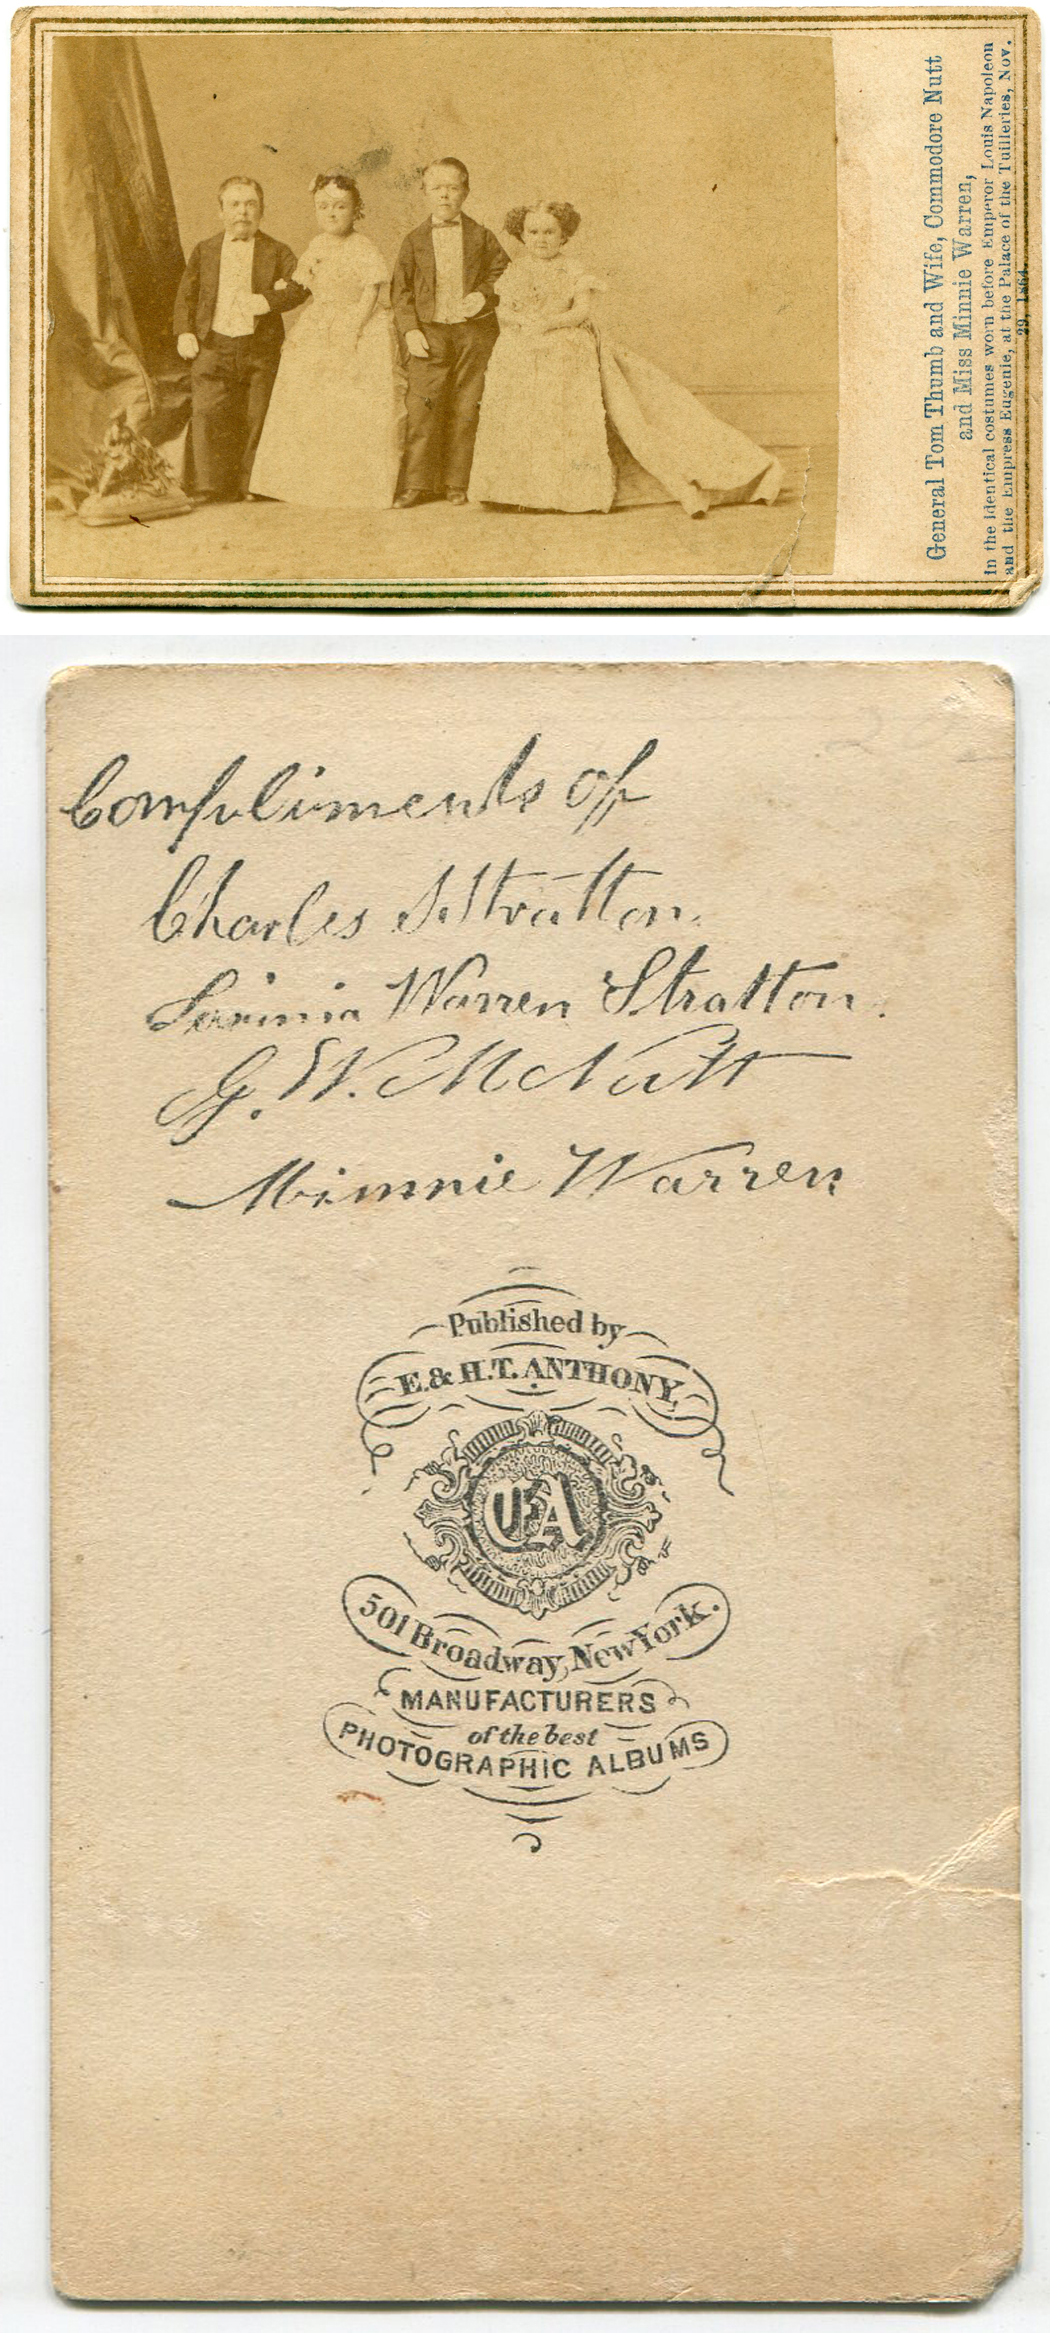 General Tom Thumb and Wife, Commodore Nutt
and Miss Minnie Warren,
In the identical costumes worn before Emperor Louis Napoleon
and the Empress Eugenie, at the Palace of the Tuilleries, Nov.
29, 1864.
Compliments of
Charles S. Stratton.
Lavinia Warren Stratton.
G. W. M Nutt
Minnie Warren
Published by
E. & H. T. ANTHONY,
EA
501 Broadway, New York.
MANUFACTURERS
of the best
PHOTOGRAPHIC ALBUMS